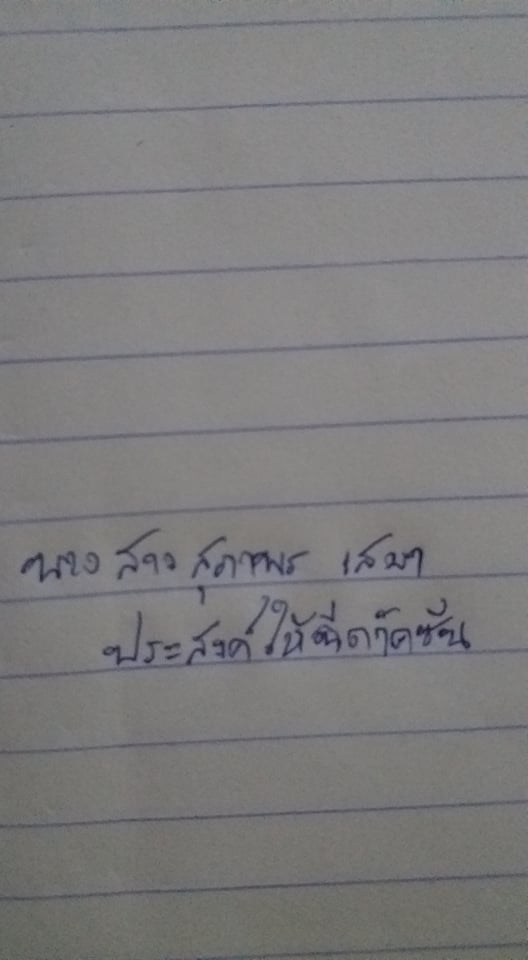 นาง สาว สุภาพร เสมา
ประสงค์ให้ฉีดวัคซีน